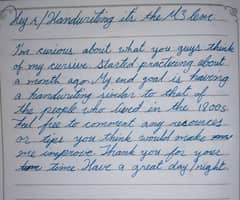 Hey r/Handwriting it's the M3 Gone.
I'm curious about what you guys think
of my cursive. Started practicing about
a month ago. My end goal is having
a handwriting similar to that of
the people who lived in the 1800s.
Feel free to comment any resources
or tips you think would make
me improve. Thank you for your
time. Have a great day/night.